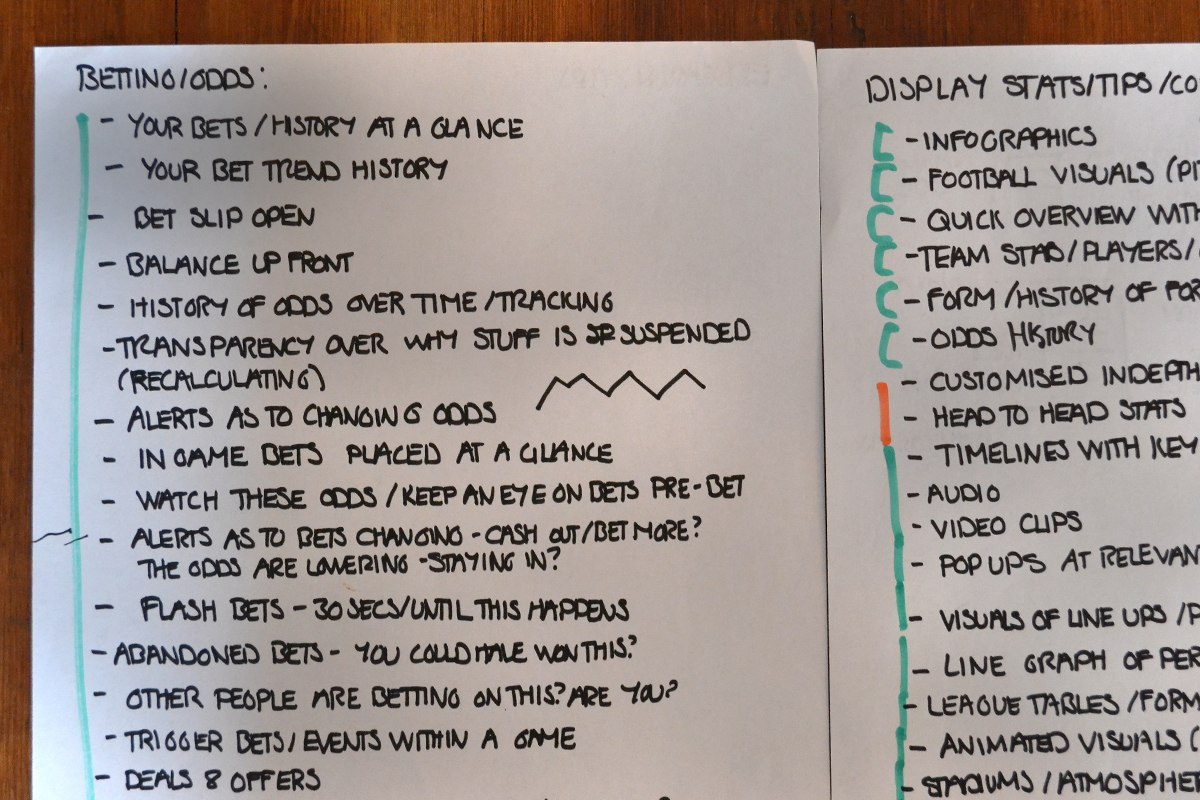 BETTING/ODDS:
- YOUR BETS / HISTORY AT A GLANCE
- YOUR BET TREND HISTORY
- BET SLIP OPEN
- BALANCE UP FRONT
- HISTORY OF ODDS OVER TIME / TRACKING
- TRANSPARENCY OVER WHY STUFF IS SUSPENDED
(RECALCULATING)
- ALERTS AS TO CHANGING ODDS
- IN GAME BETS PLACED AT A GLANCE
- WATCH THESE ODDS / KEEP AN EYE ON BETS PRE-BET
- ALERTS AS TO BETS CHANGING - CASH OUT/BET MORE?
THE ODDS ARE LOWERING - STAYING IN?
- FLASH BETS - 30 SECS/UNTIL THIS HAPPENS
- ABANDONED BETS - YOU COULD HAVE WON THIS?
- OTHER PEOPLE ARE BETTING ON THIS? ARE YOU?
- TRIGGER BETS / EVENTS WITHIN A GAME
- DEALS & OFFERS
DISPLAY STATS/TIPS/CO
- INFOGRAPHICS
- FOOTBALL VISUALS (PIT
- QUICK OVERVIEW WITH
- TEAM STABS/PLAYERS/
- FORM / HISTORY OF FOR
- ODDS HISTORY
- CUSTOMISED INDEPTH
- HEAD TO HEAD STATS
- TIMELINES WITH KEY
- AUDIO
- VIDEO CLIPS
- POP UPS AT RELEVAN
- VISUALS OF LINE UPS / P
- LINE GRAPH OF PER
- LEAGUE TABLES / FORM
- ANIMATED VISUALS (
- STADIUMS / ATMOSPHE